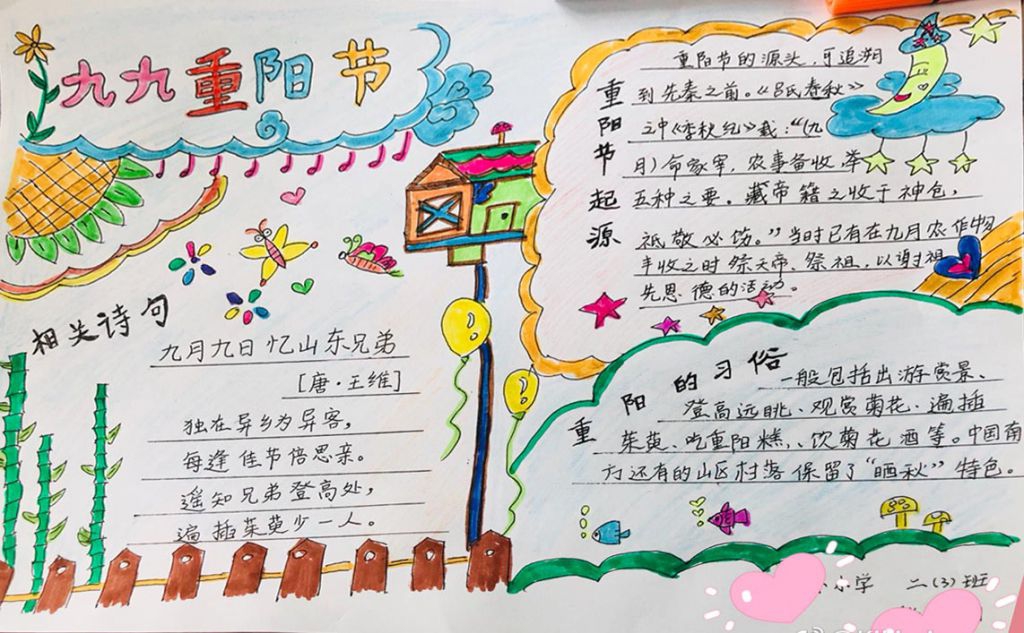 九九重阳节
相关诗句
九月九日忆山东兄弟
[唐·王维]
独在异乡为异客,
每逢佳节倍思亲。
遥知兄弟登高处,
遍插茱萸少一人。
重阳节起源
重阳节的源头,可追溯
到先秦之前。《吕氏春秋》
之中《季秋纪》载:“(九
月)命家宰,农事备收,举
五种之要。藏帝籍之收于神仓,
祗敬必饬。”当时已有在九月农作物
丰收之时祭天帝、祭祖,以谢祖
先恩德的活动。
重阳的习俗
一般包括出游赏景、
登高远眺、观赏菊花、遍插
茱萸、吃重阳糕、饮菊花酒等。中国南
方还有的山区村落保留了“晒秋”特色。
小学 二(3)班